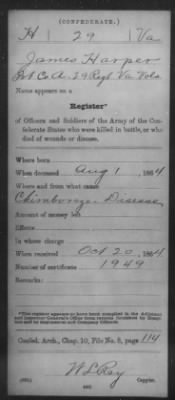 (CONFEDERATE.)
H 29 Va
James Harper
Pvt Co A. 29 Regt Va Vols.
Name appears on a
Register*
of Officers and Soldiers of the Army of the Confederate
States who were killed in battle, or who
died of wounds or disease.
Where born
When deceased Aug 1, 1864
Where and from what cause
Chimborazo - Disease
Amount of money left
Effects
In whose charge
When received Oct 20, 1864
Number of certificate 1949
Remarks:
*This register appears to have been compiled in the Adjutant
and Inspector General's Office from returns furnished by Hospitals
and by Regimental and Company Officers.
Confed. Arch., Chap. 10, File No. 8, page 114
W L Ray
Copyist.